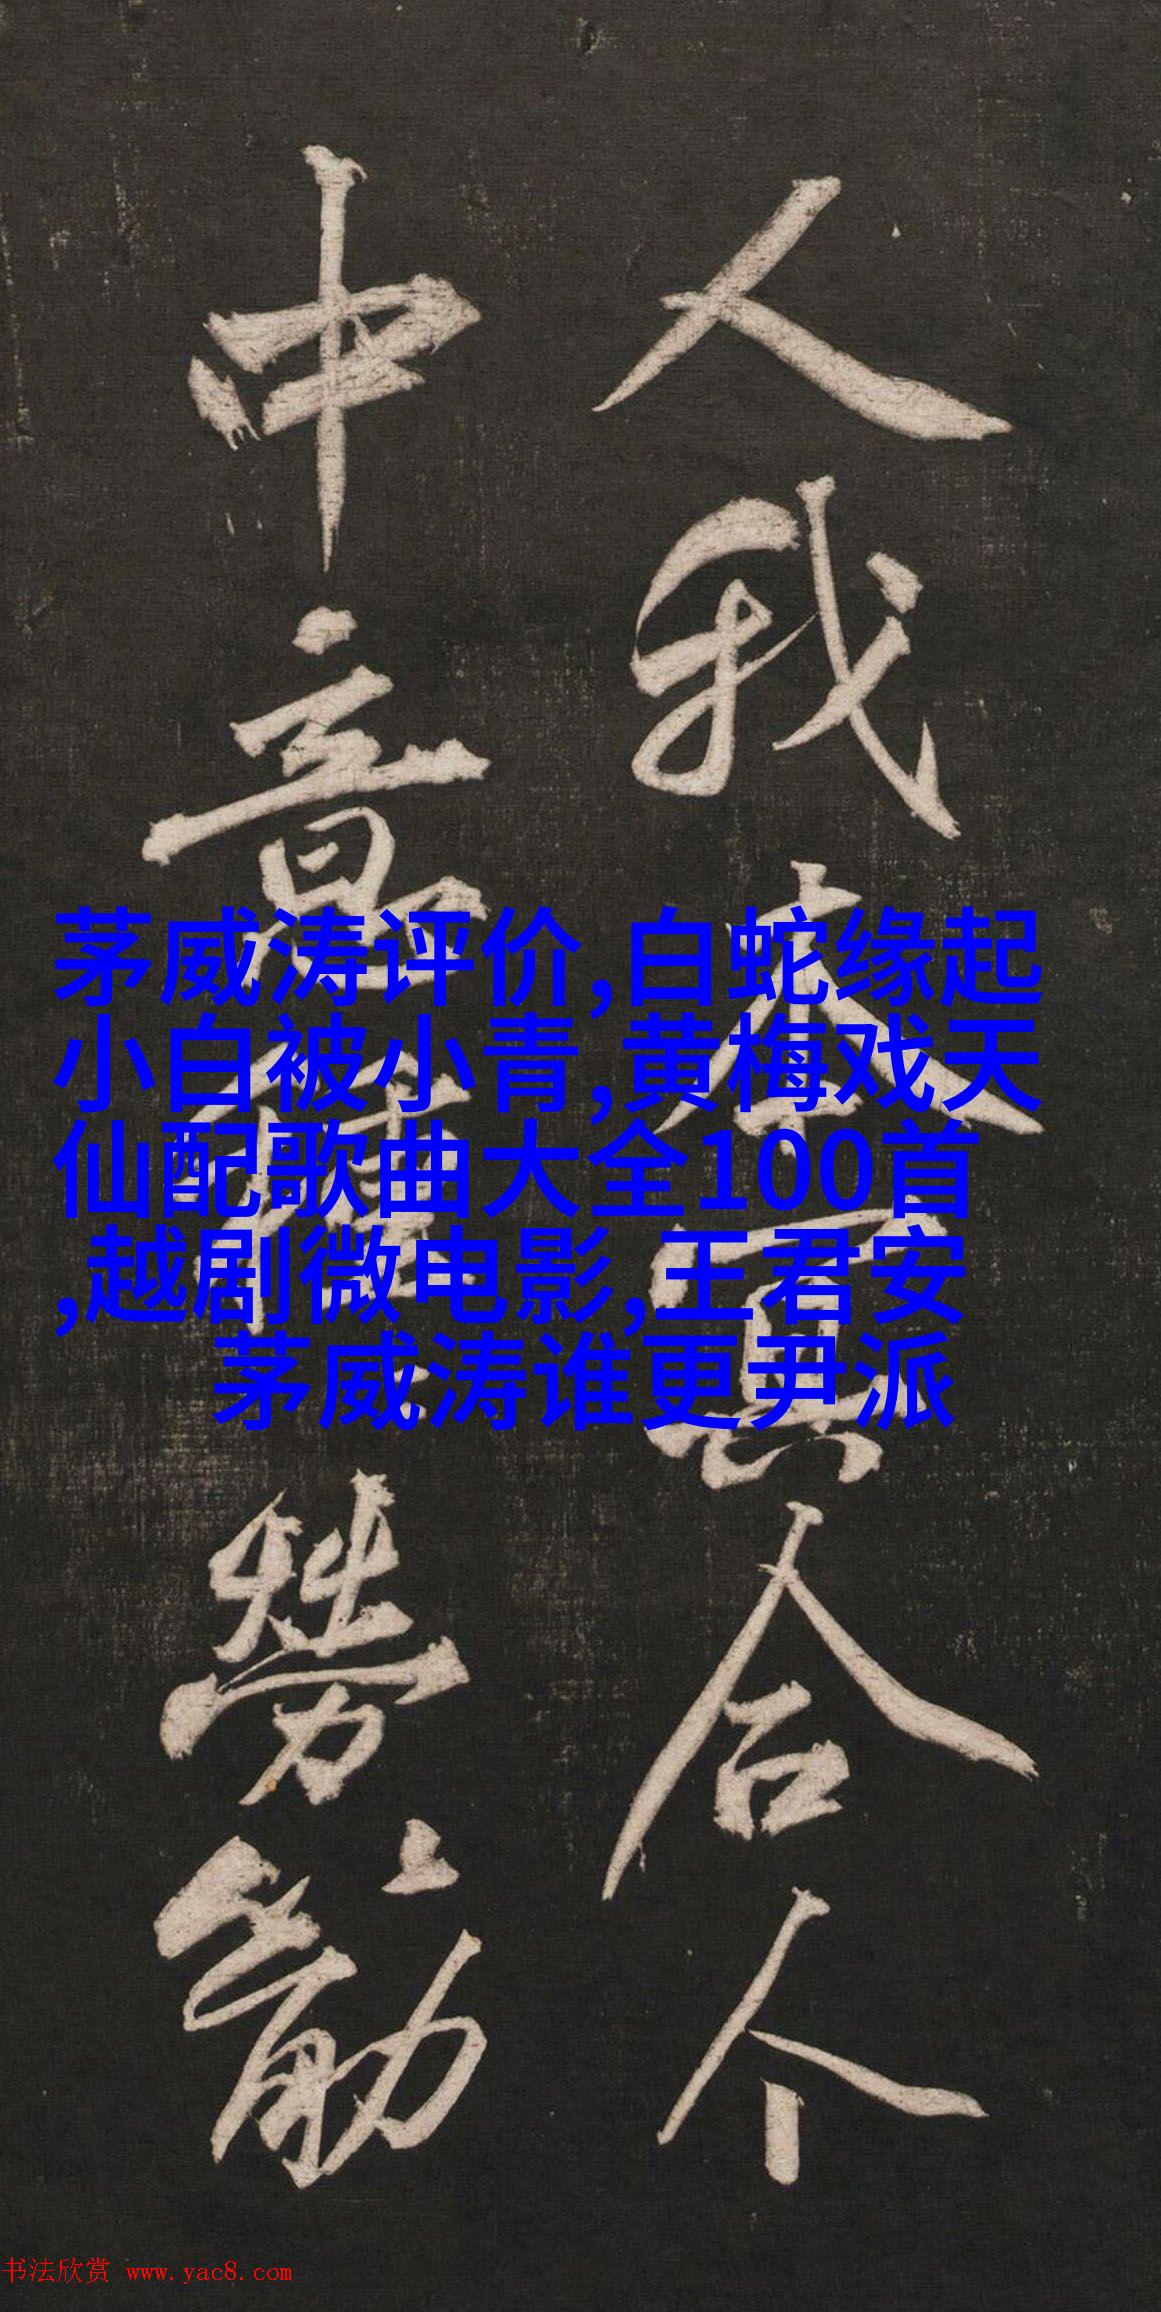 人我本冥合个
中意種勞筋
茅威涛评价,白蛇缘起
小白被小青,黄梅戏天
仙配歌曲大全100首
,越剧微电影,王君安
茅威涛谁更尹派
书法欣赏 www.yac8.com